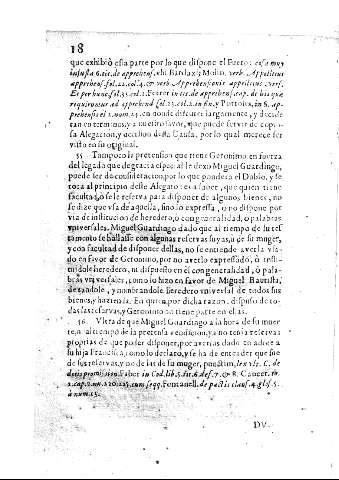 18
que exhibiò esta parte por lo que dispone el Fuero: casu muy
injusta 6. tit. de apprehens. vbi Bardaxi; Molin. verb. Appellitus
apprehens. fol. 22. col. 4. & verb. Apprehensionis appellitus vers.
Et per hunc. fol. 35. col. 1. Ferrer in tit. de apprehens. cap. de his quæ
requiruntur ad apprehens. fol. 23. col. 2. in fin. y Portoles, in 6. ap-
prehensis el 2. num. 24. en donde discurre largamente, y decide
tan en terminos, y a nuestro favor, que puede servir de copio-
sa Alegacion, y decision desta Causa, por lo qual merece ser
visto en su original.
55 Tampoco la pretension que tiene Geronimo en fuerza
del legado que de gracia especial le dexò Miguel Guardingo,
puede ser de consideracion, por lo que pondera el Dubio, y se
toca al principio deste Alegato: es a saber, que quien tiene
facultad, ò se le reserva para disponer de algunos bienes, no
se dize que vsa de aquella, sino lo expressa, ò no dispone por
via de institucion de heredero, ò con generalidad, ò palabras
vniversales. Miguel Guardingo dado que al tiempo de su tes-
tamento se hallasse con algunas reservas suyas, ù de su muger,
y con facultad de disponer dellas, no se entiende averla vsa-
do en favor de Geronimo, por no averlo expressado, ò insti-
tuidole heredero, ni dispuesto en èl con generalidad, ò pala-
bras vniversales, como lo hizo en favor de Miguel Bautista,
dexandole, y nombrandole heredero vniversal de todos sus
bienes, y haziendas. En quien por dicha razon, dispuso de to-
das las reservas, y Geronimo no tiene parte en ellas.
56 Vltra de que Miguel Guardingo a la hora de su muer-
te, u al tiempo de la pretensa exposicion, ya no tenia reservas
proprias de que poder disponer, por averlas dado en adote a
su hija Francisca, como lo declarò, y se ha de entender que fue
de sus reservas, y no de las de su muger, por ser
dotis promission. Faber in Cod. lib. 5. tit. 6. def. 7. & 8. Cancer. to.
2. cap. 2. nu. 220. 225. cum seqq. Fontanell. de pactis claus. 4. glos. 5.
à num. 15.
DV-